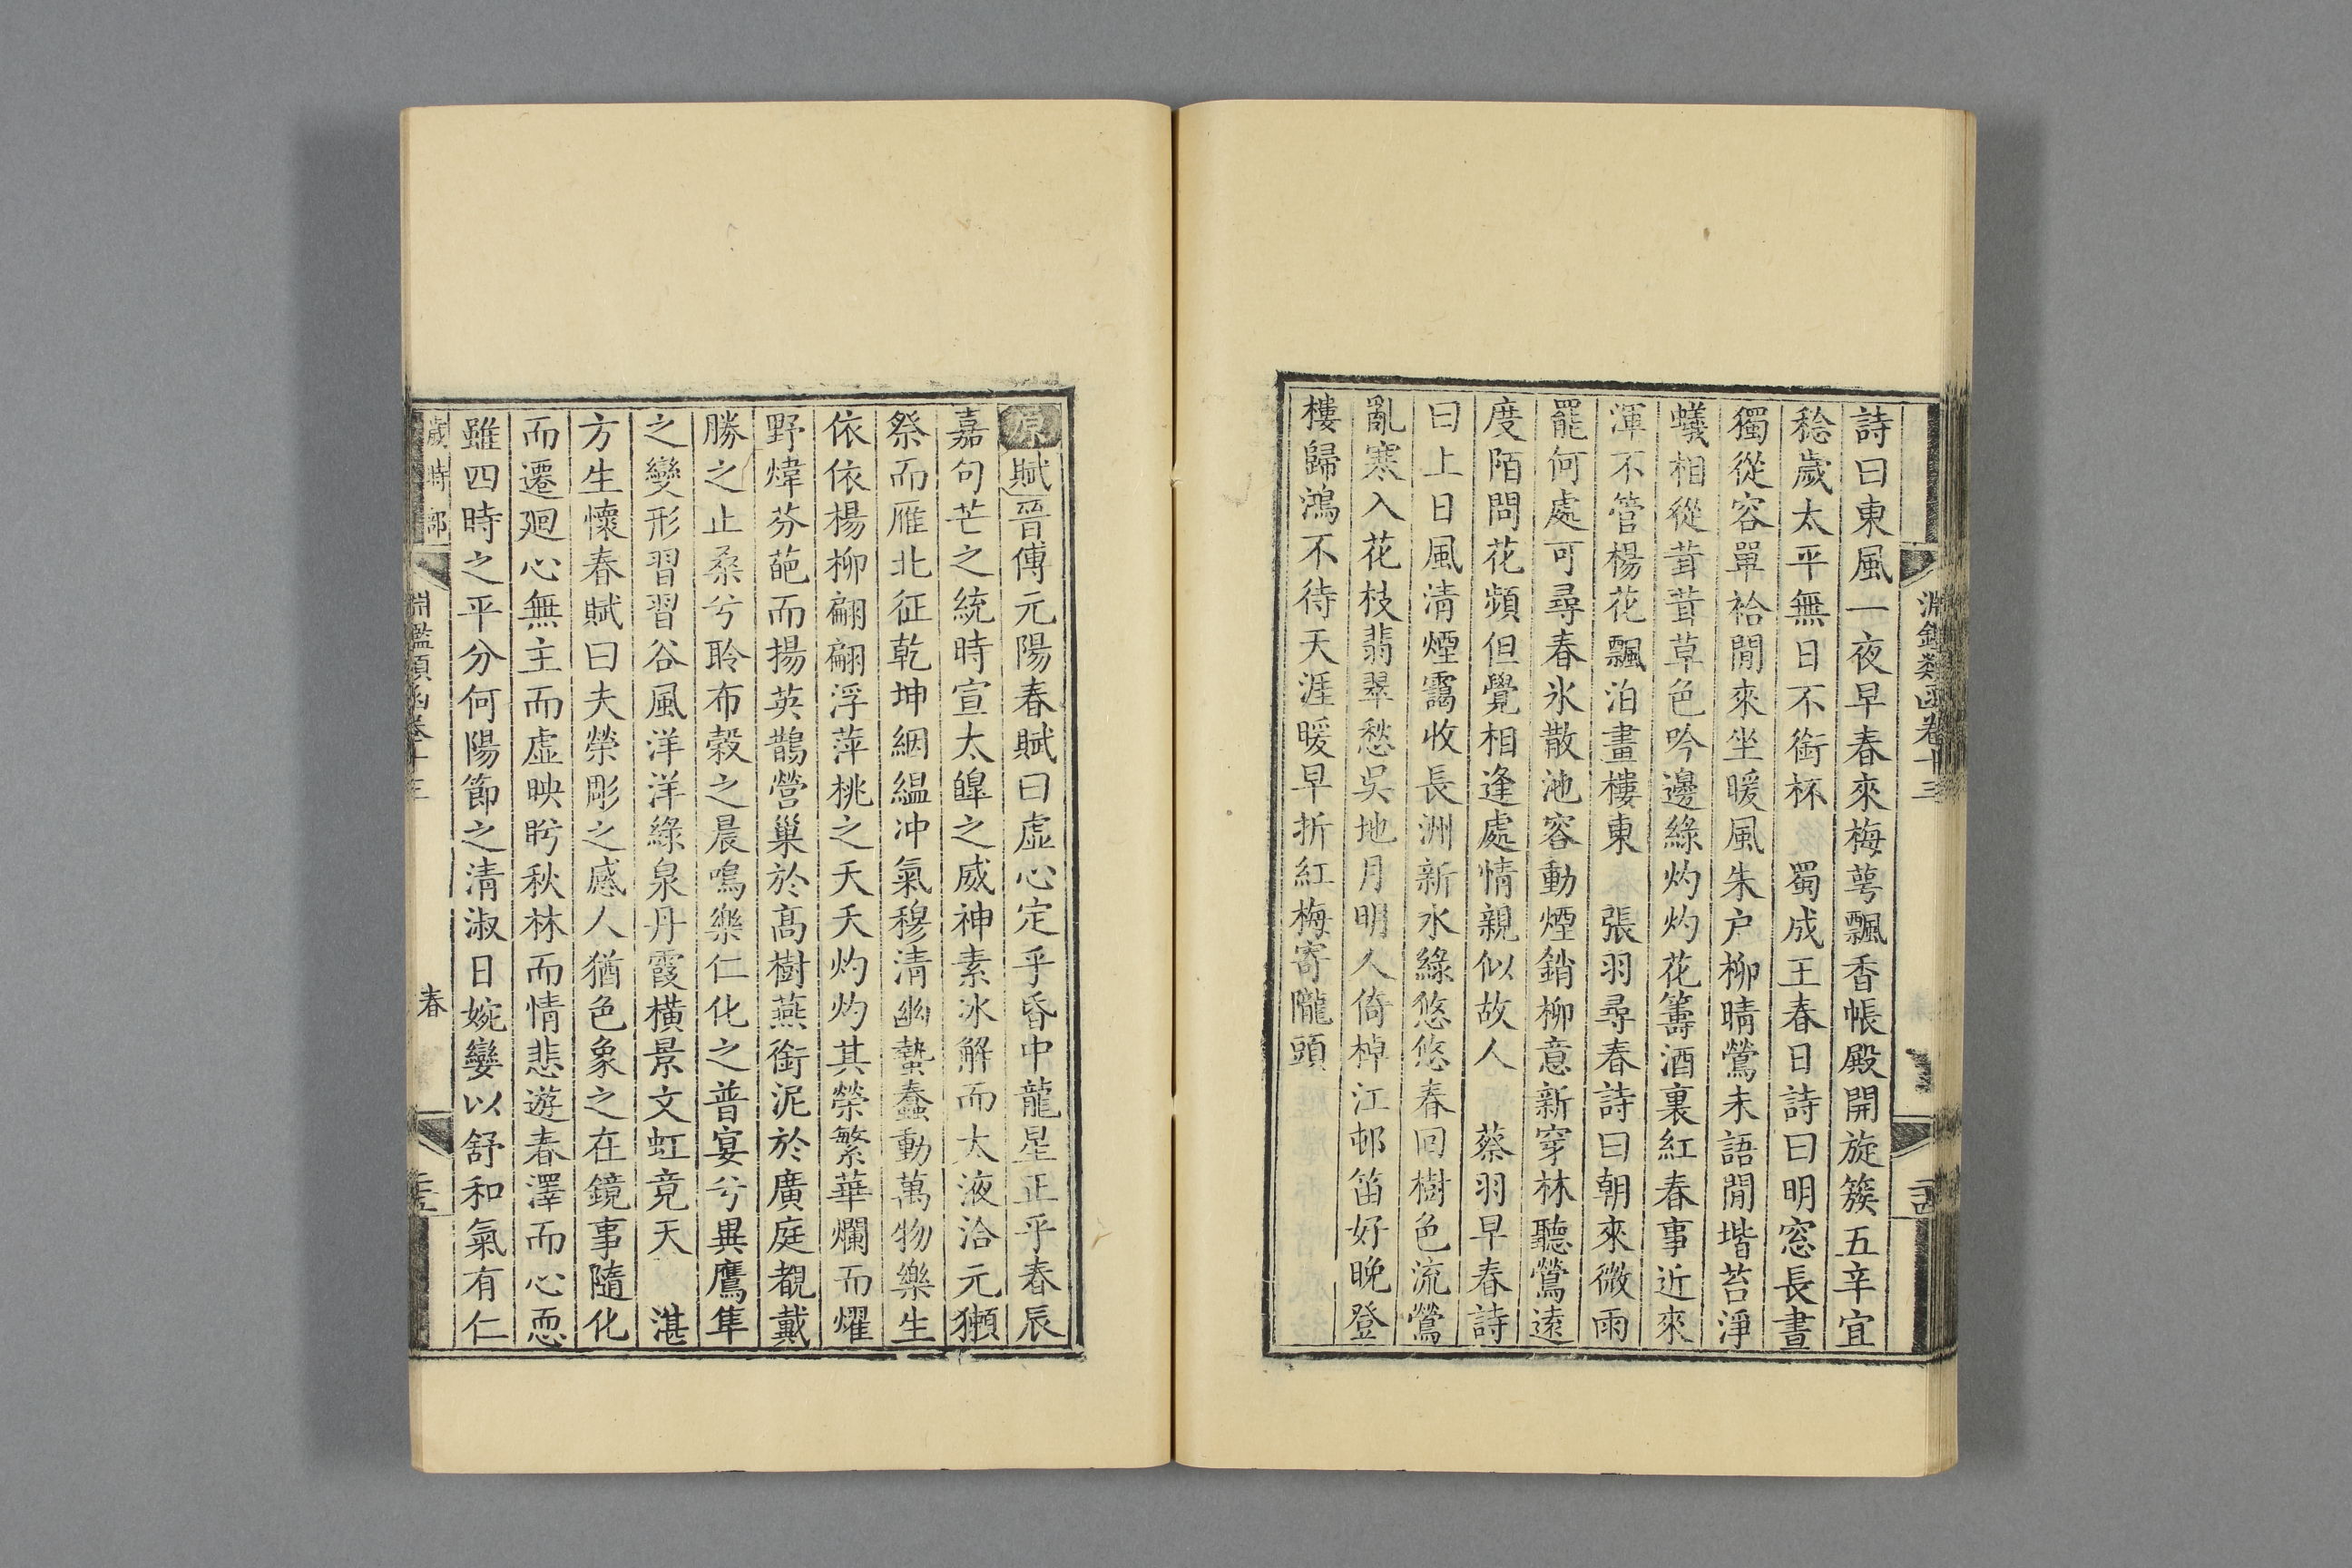 淵鑑類函卷十三
詩曰東風一夜早春來梅萼飄香帳殿開旋簇五辛宜
稔歲太平無日不銜杯　蜀成王春日詩曰明窓長晝
獨從容單袷閒來坐暖風朱户柳晴鶯未語閒堦苔淨
蟻相從茸茸草色吟邊綠灼灼花篝酒裏紅春事近來
渾不管楊花飄泊畫樓東　張羽尋春詩曰朝來微雨
罷何處可尋春氷散池容動煙銷柳意新穿林聽鶯遠
度陌問花頻但覺相逢處情親似故人　蔡羽早春詩
曰上日風清煙靄收長洲新水綠悠悠春回樹色流鶯
亂寒入花枝翡翠愁吳地月明人倚棹江邨笛好晚登
樓歸鴻不待天涯暖早折紅梅寄隴頭
原賦晉傅元陽春賦曰虛心定乎昏中龍星正乎春辰
嘉句芒之統時宣太皥之威神素冰解而太液洽元獺
祭而雁北征乾坤絪縕冲氣穆清幽蟄蠢動萬物樂生
依依楊柳翩翩浮萍桃之夭夭灼灼其榮繁華爛而燿
野煒芬葩而揚英鵲營巢於高樹燕銜泥於廣庭覩戴
勝之止桑兮聆布穀之晨鳴樂仁化之普宴兮異鷹隼
之變形習習谷風洋洋綠泉丹霞橫景文虹竟天　湛
方生懷春賦曰夫榮彫之感人猶色象之在鏡事隨化
而遷迴心無主而虛映眄秋林而情悲遊春澤而心恧
雖四時之平分何陽節之清淑日婉孌以舒和氣有仁
歲時部　淵鑑類函卷十三　春